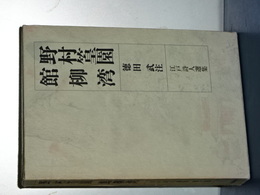 江戸詩人選集
野村篁園
館柳湾
徳田武注